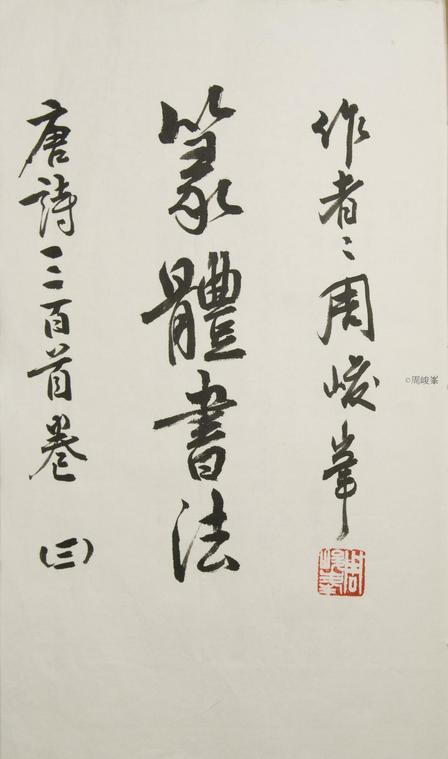 作者：周峻峯
篆體書法
唐詩三百首卷（三）
周峻峯
©周峻峯